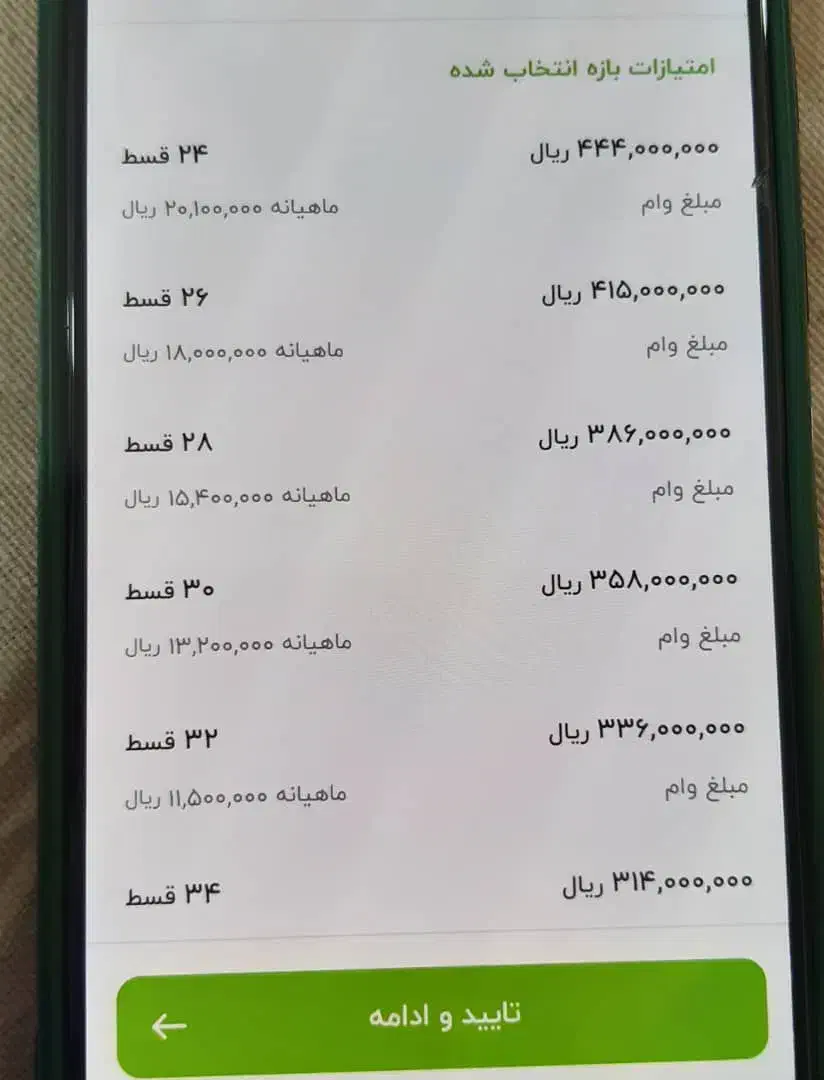 امتیازات بازه انتخاب شده
۴۴۴,۰۰۰,۰۰۰ ریال ۲۴ قسط
مبلغ وام ماهیانه ۲۰,۱۰۰,۰۰۰ ریال
۴۱۵,۰۰۰,۰۰۰ ریال ۲۶ قسط
مبلغ وام ماهیانه ۱۸,۰۰۰,۰۰۰ ریال
۳۸۶,۰۰۰,۰۰۰ ریال ۲۸ قسط
مبلغ وام ماهیانه ۱۵,۴۰۰,۰۰۰ ریال
۳۵۸,۰۰۰,۰۰۰ ریال ۳۰ قسط
مبلغ وام ماهیانه ۱۳,۲۰۰,۰۰۰ ریال
۳۳۶,۰۰۰,۰۰۰ ریال ۳۲ قسط
مبلغ وام ماهیانه ۱۱,۵۰۰,۰۰۰ ریال
۳۱۴,۰۰۰,۰۰۰ ریال ۳۴ قسط
تایید و ادامه